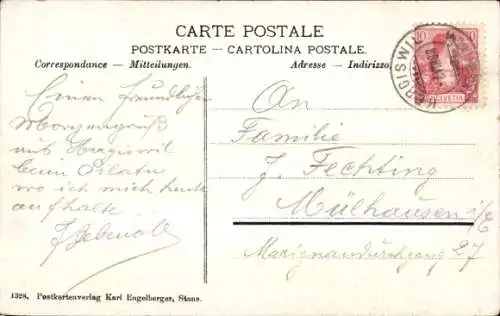 CARTE POSTALE
POSTKARTE – CARTOLINA POSTALE.
Correspondance – Mitteilungen.
Adresse – Indirizzo
10 10
HELVETIA
Einen freundlichen
Morgengruß
aus Hergiswil
beim Pilatus
wo ich mich heute
aufhalte
An
Familie
J. Fechting
Mülhausen i/E
Marignandurchgang 27
1328. Postkartenverlag Karl Engelberger, Stans.